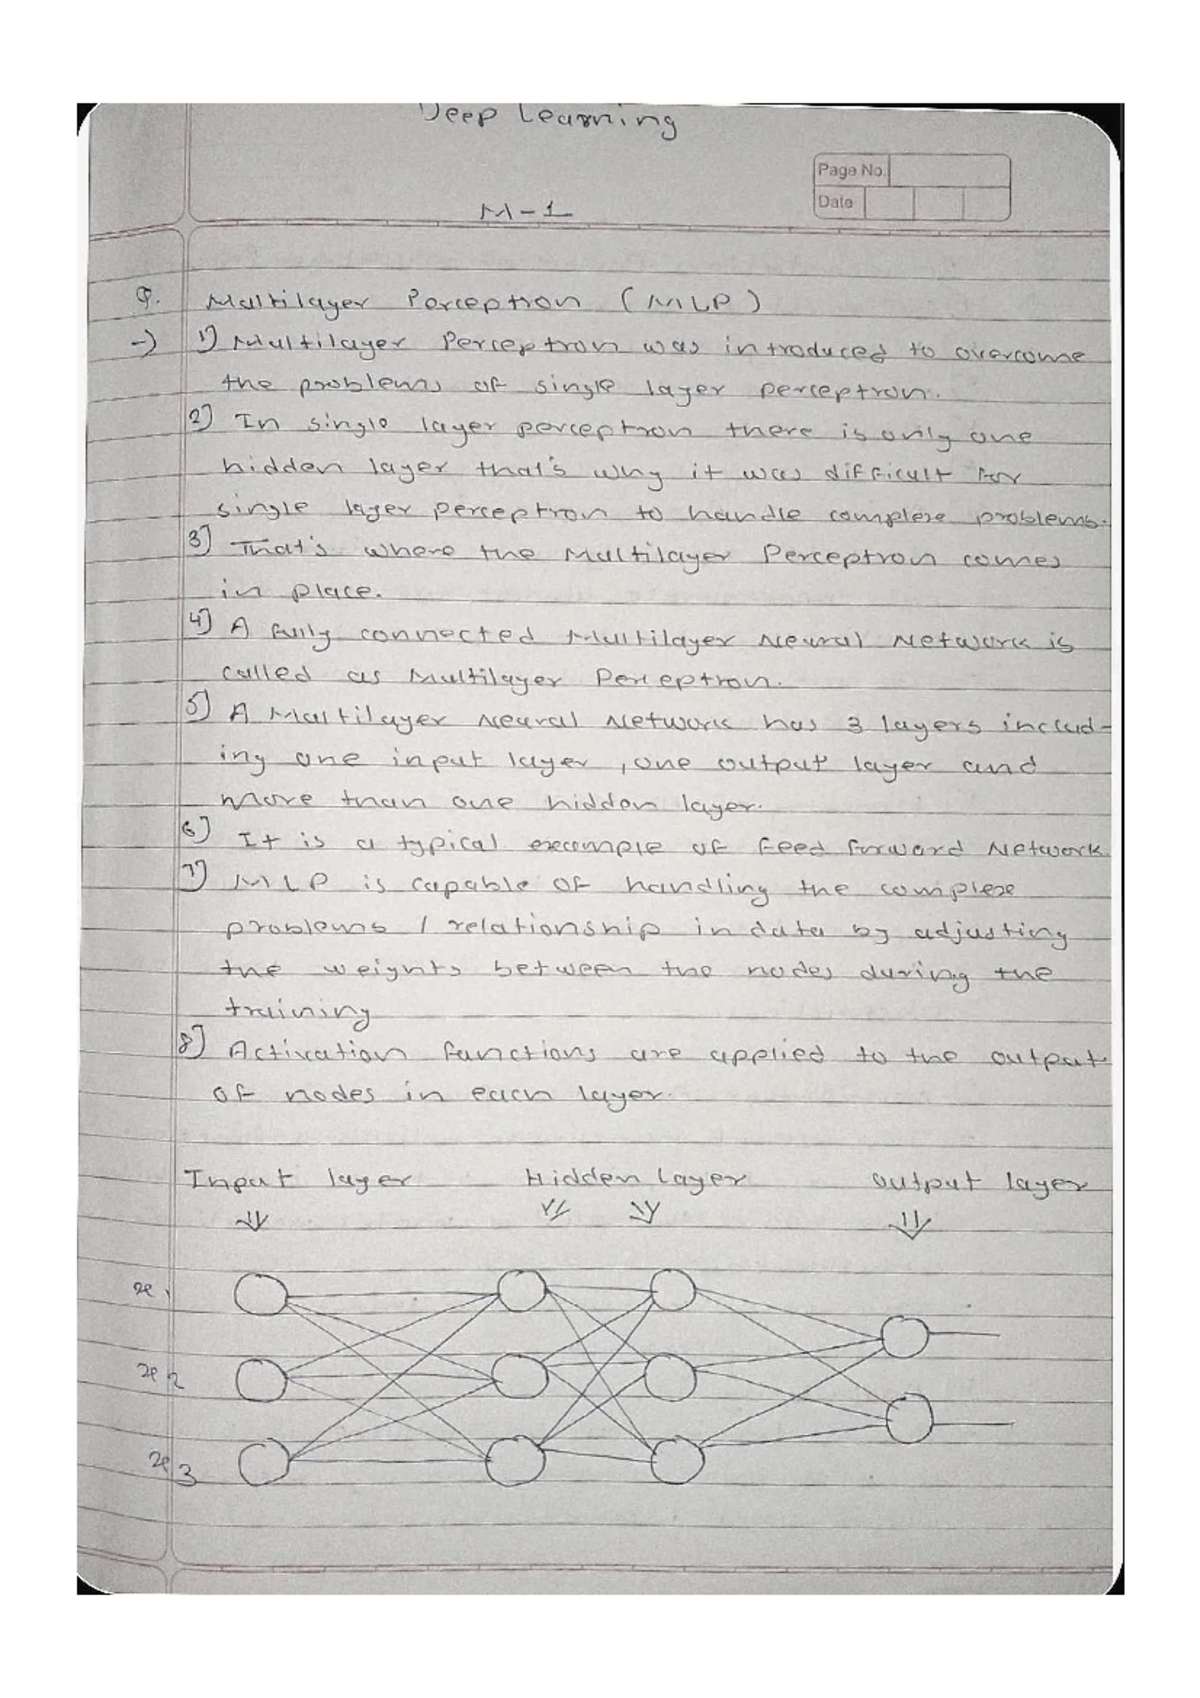 Deep Learning
Page No.
Date
M-1
Q. Multilayer Perception (MLP)
→ 1) Multilayer Perceptron was introduced to overcome
the problems of single layer perceptron.
2) In single layer perceptron there is only one
hidden layer that's why it was difficult for
single layer perceptron to handle complex problems.
3) That's where the Multilayer Perceptron comes
in place.
4) A fully connected Multilayer Neural Network is
called as Multilayer Perceptron.
5) A Multilayer Neural Network has 3 layers includ-
ing one input layer, one output layer and
more than one hidden layer.
6) It is a typical example of Feed Forward Network
7) MLP is capable of handling the complex
problems / relationship in data by adjusting
the weights between the nodes during the
training
8) Activation functions are applied to the output
of nodes in each layer.
Input layer Hidden Layer Output layer
x1
x2
x3